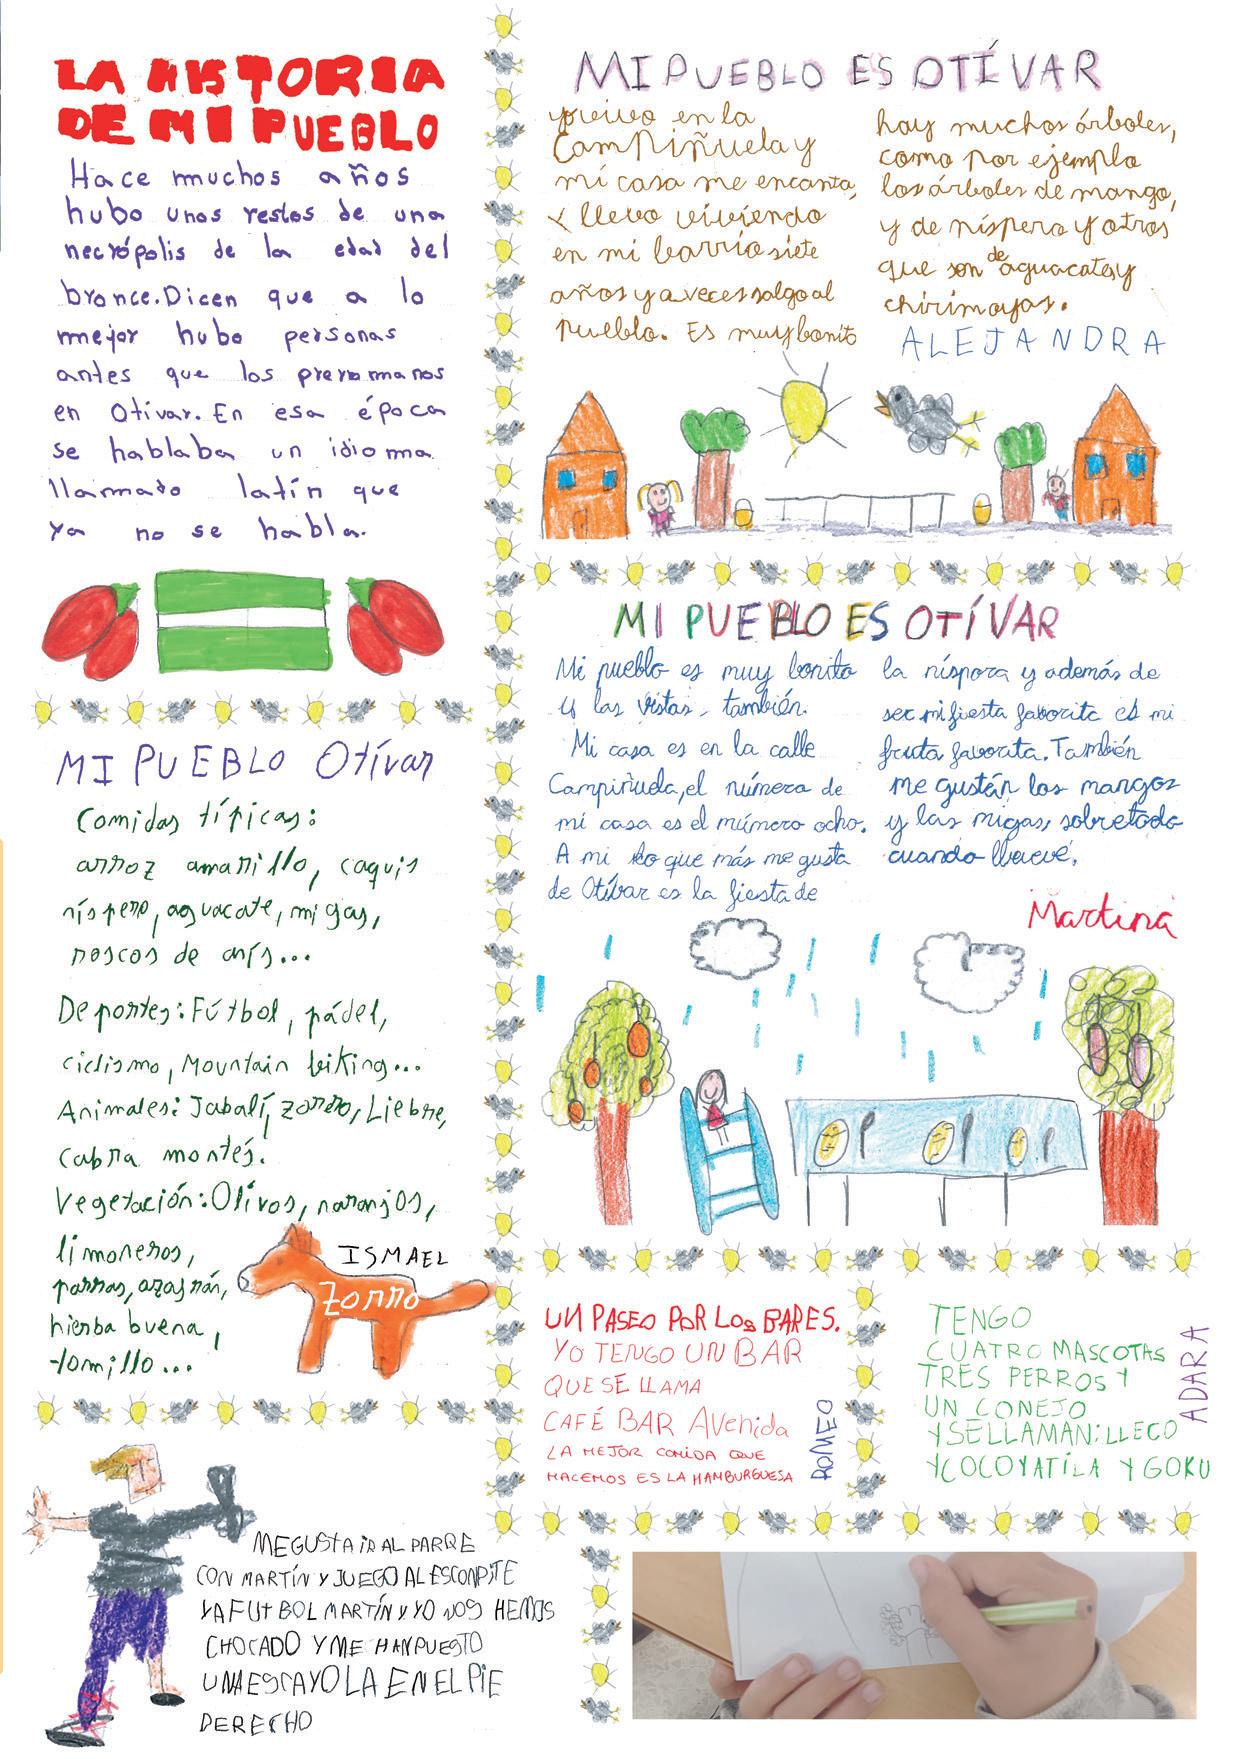 LA HISTORIA
DE MI PUEBLO
Hace muchos años
hubo unos restos de una
necrópolis de la edad del
bronce. Dicen que a lo
mejor hubo personas
antes que los prerromanos
en Otívar. En esa época
se hablaba un idioma
llamado latín que
ya no se habla.
MI PUEBLO Otívar
Comidas típicas:
arroz amarillo, caquis
níspero, aguacate, migas,
roscos de anís...
Deportes: Fútbol, pádel,
ciclismo, Mountain biking...
Animales: Jabalí, zorro, Liebre,
cabra montés.
Vegetación: Olivos, naranjos,
limoneros,
parras, azagrán,
hierba buena,
tomillo...
ISMAEL
Zorro
ME GUSTA IR AL PARQE
CON MARTÍN Y JUEGO AL ESCONPITE
Y A FUTBOL MARTÍN Y YO NOS HEMOS
CHOCADO Y ME HAN PUESTO
UNA ESCAYOLA EN EL PIE
DERECHO
MI PUEBLO ES OTÍVAR
yo vivo en la
Campiñuela y
mi casa me encanta,
Y llevo viviendo
en mi barrio siete
años y a veces salgo al
pueblo. Es muy bonito
hay muchos árboles,
como por ejemplo
los árboles de mango,
y de níspero y otros
que son de aguacates y
chirimoyas.
ALEJANDRA
MI PUEBLO ES OTÍVAR
Mi pueblo es muy bonito
y las vistas, también.
Mi casa es en la calle
Campiñuela, el número de
mi casa es el número ocho.
A mi lo que más me gusta
de Otíbar es la fiesta de
la níspora y además de
ser mi fiesta favorita es mi
fruta favorita. También
me gustán los mangos
y las migas, sobretodo
cuando llueve.
Martina
UN PASEO POR LOS BARES.
YO TENGO UN BAR
QUE SE LLAMA
CAFÉ BAR Avenida
LA MEJOR COMIDA QUE
HACEMOS ES LA HAMBURGUESA
ROMEO
TENGO
CUATRO MASCOTAS
TRES PERROS Y
UN CONEJO
Y SE LLAMAN: LLECO
Y COCO Y ATILA Y GOKU
ADARA